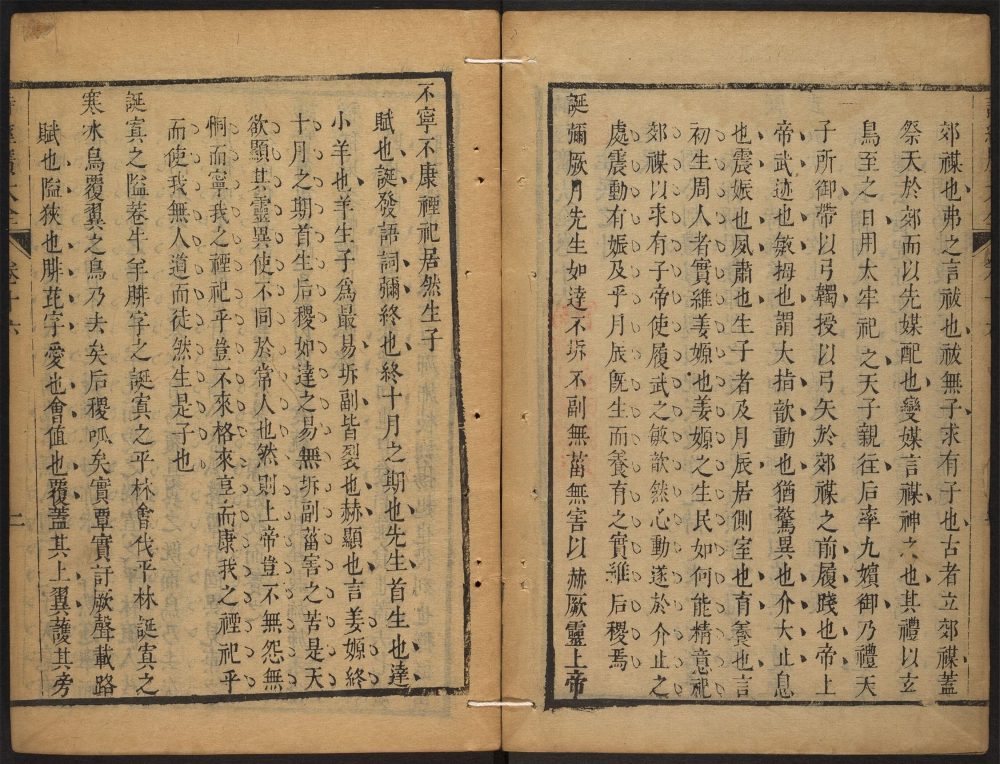 郊禖也弗之言祓也祓無子求有子也古者立郊禖蓋
祭天於郊而以先媒配也變媒言禖神之也其禮以玄
鳥至之日用大牢祀之天子親往后率九嬪御乃禮天
子所御帶以弓韣授以弓矢於郊禖之前履踐也帝上
帝武迹也敏拇也謂大指歆動也猶驚異也介大止息
也震娠也夙肅也生子者及月辰居側室也育養也言
初生周人者實維姜嫄也姜嫄之生民如何能精意祀
郊禖以求有子帝使履武之敏歆然心動遂於介止之
處震動有娠及乎月辰旣生而養有之實維后稷焉
誕彌厥月先生如達不坼不副無菑無害以赫厥靈上帝
不寧不康禋祀居然生子
賦也誕發語詞彌終也終十月之期也先生首生也達
小羊也羊生子爲最易坼副皆裂也赫顯也言姜嫄終
十月之期首生后稷如達之易無坼副菑害之苦是天
欲顯其靈異使不同於常人也然則上帝豈不無怨無
恫而寧我之禋祀乎豈不來格來享而康我之禋祀乎
而使我無人道而徒然生是子也
誕寘之隘巷牛羊腓字之誕寘之平林會伐平林誕寘之
寒冰鳥覆翼之鳥乃去矣后稷呱矣實覃實訏厥聲載路
賦也隘狹也腓芘字愛也會值也覆蓋其上翼護其旁
卷十六
二